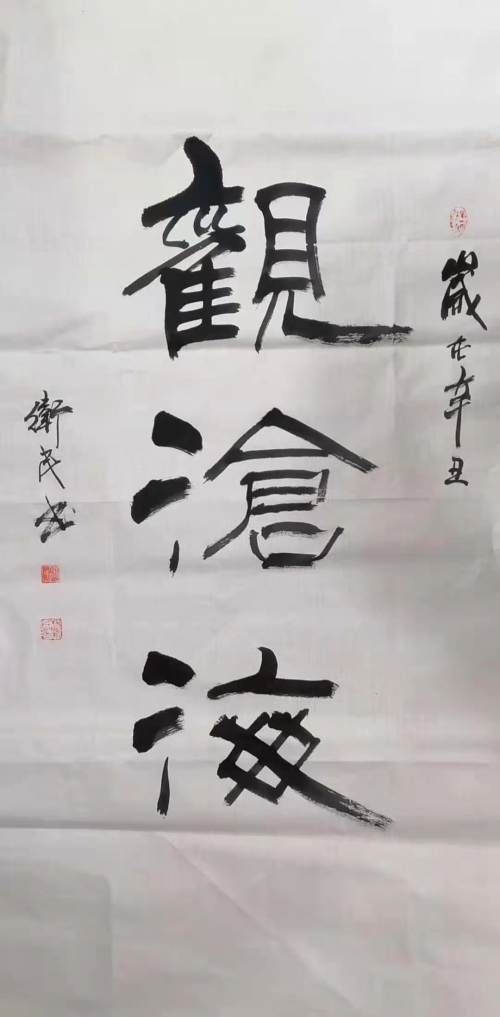 歲在辛丑
觀滄海
衛民书